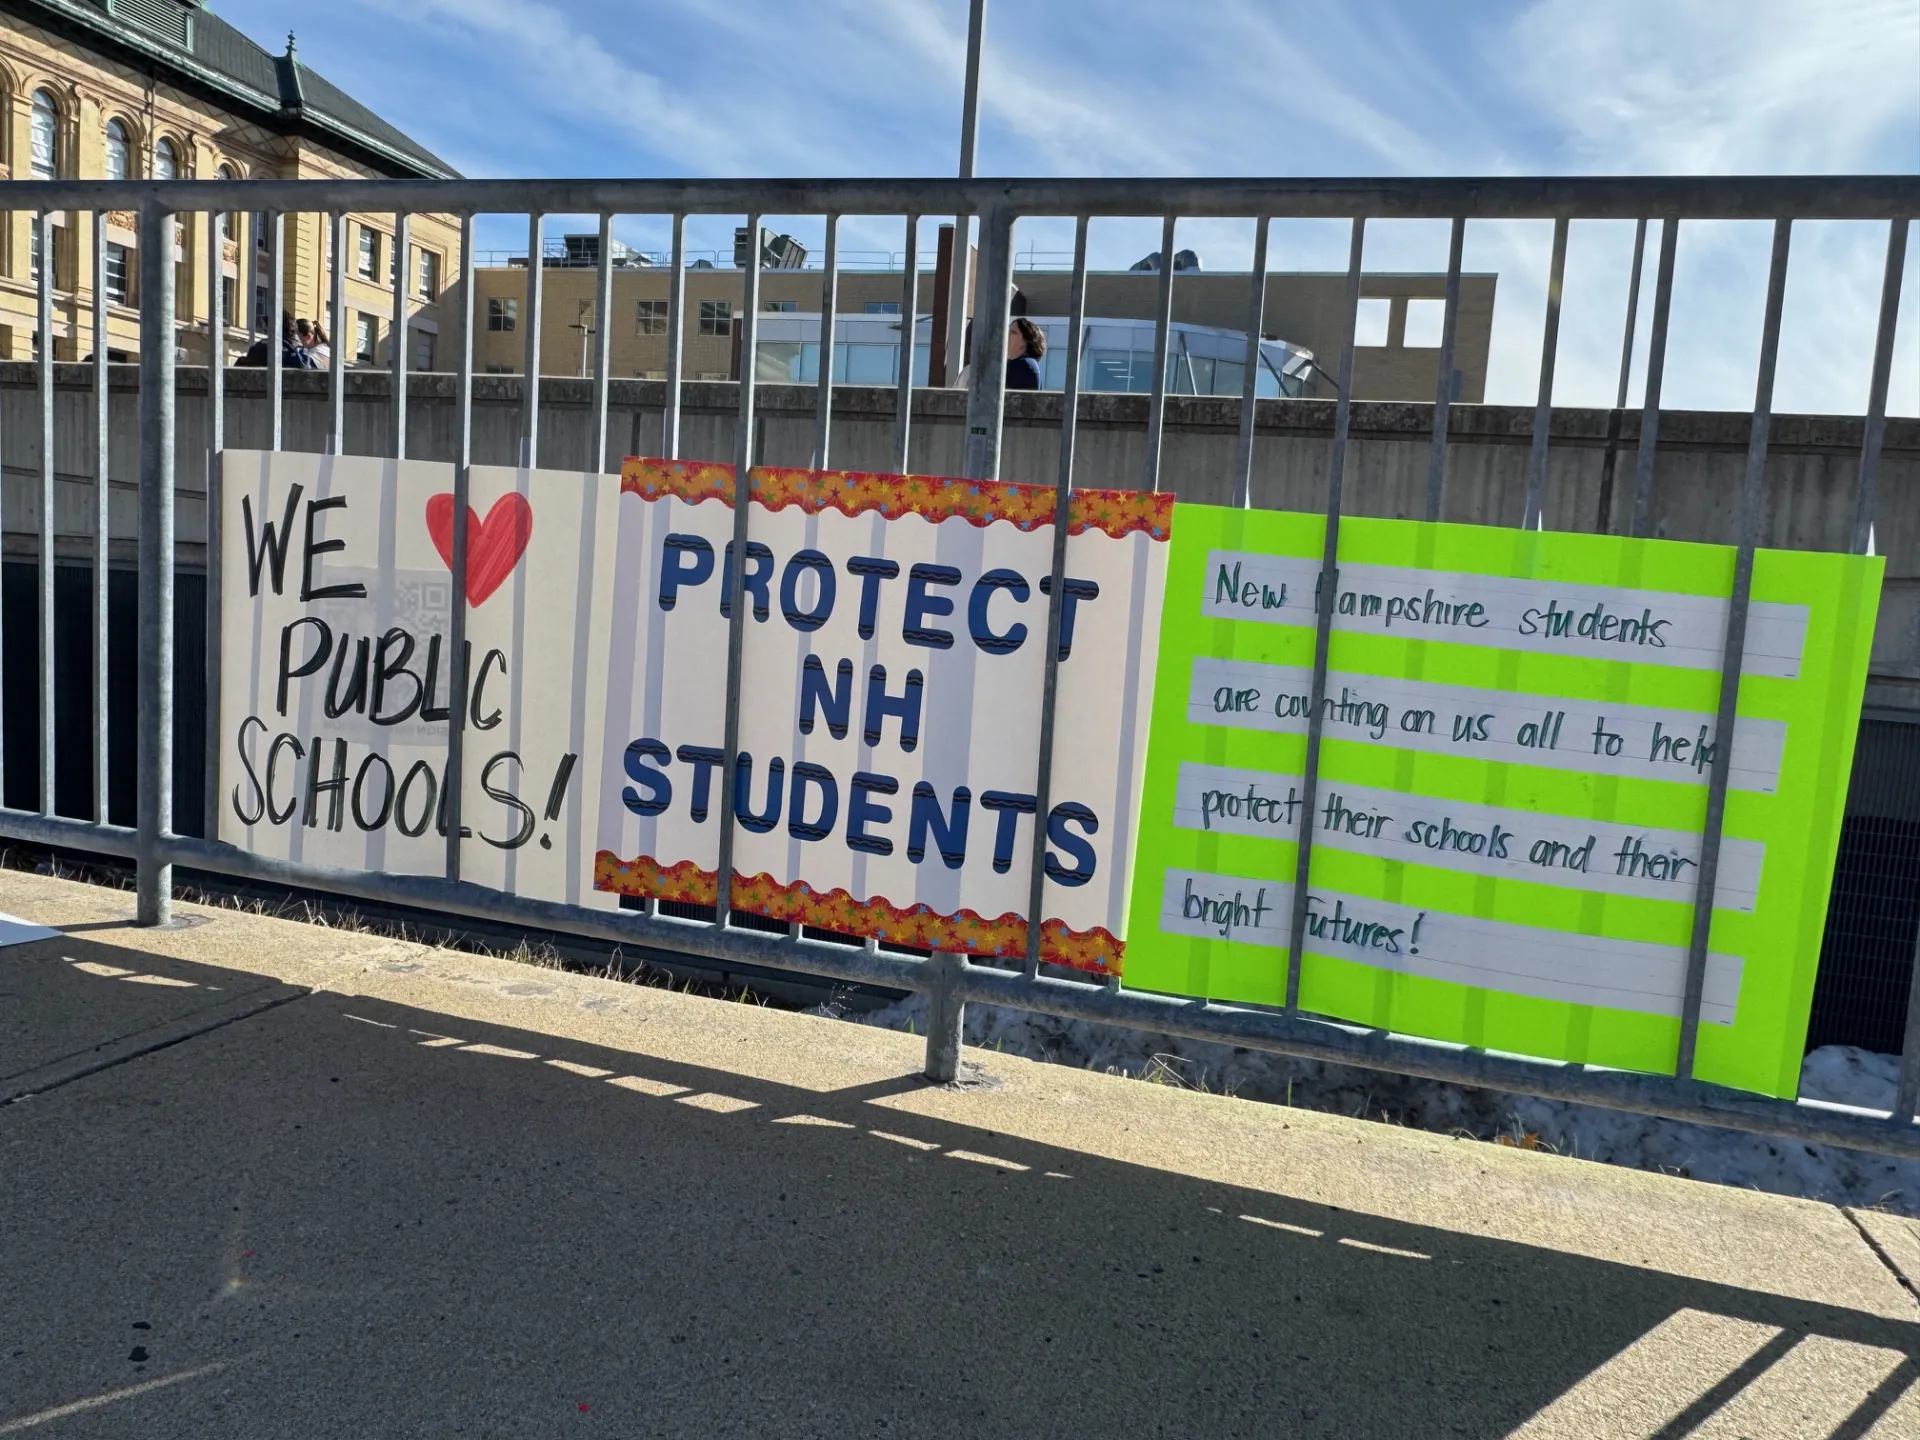 WE ❤
PUBLIC
SCHOOLS!
PROTECT
NH
STUDENTS
New Hampshire students
are counting on us all to help
protect their schools and their
bright futures!